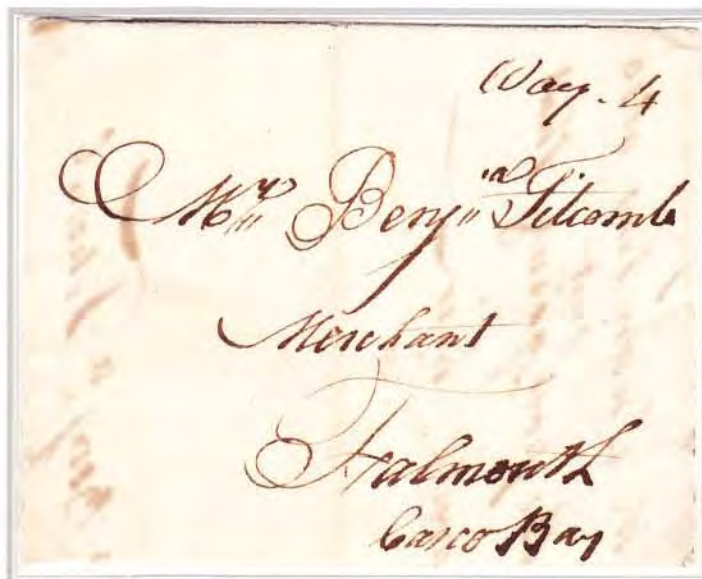 Way. 4
Mr Benjn Titcomb
Merchant
Falmouth
Casco Bay